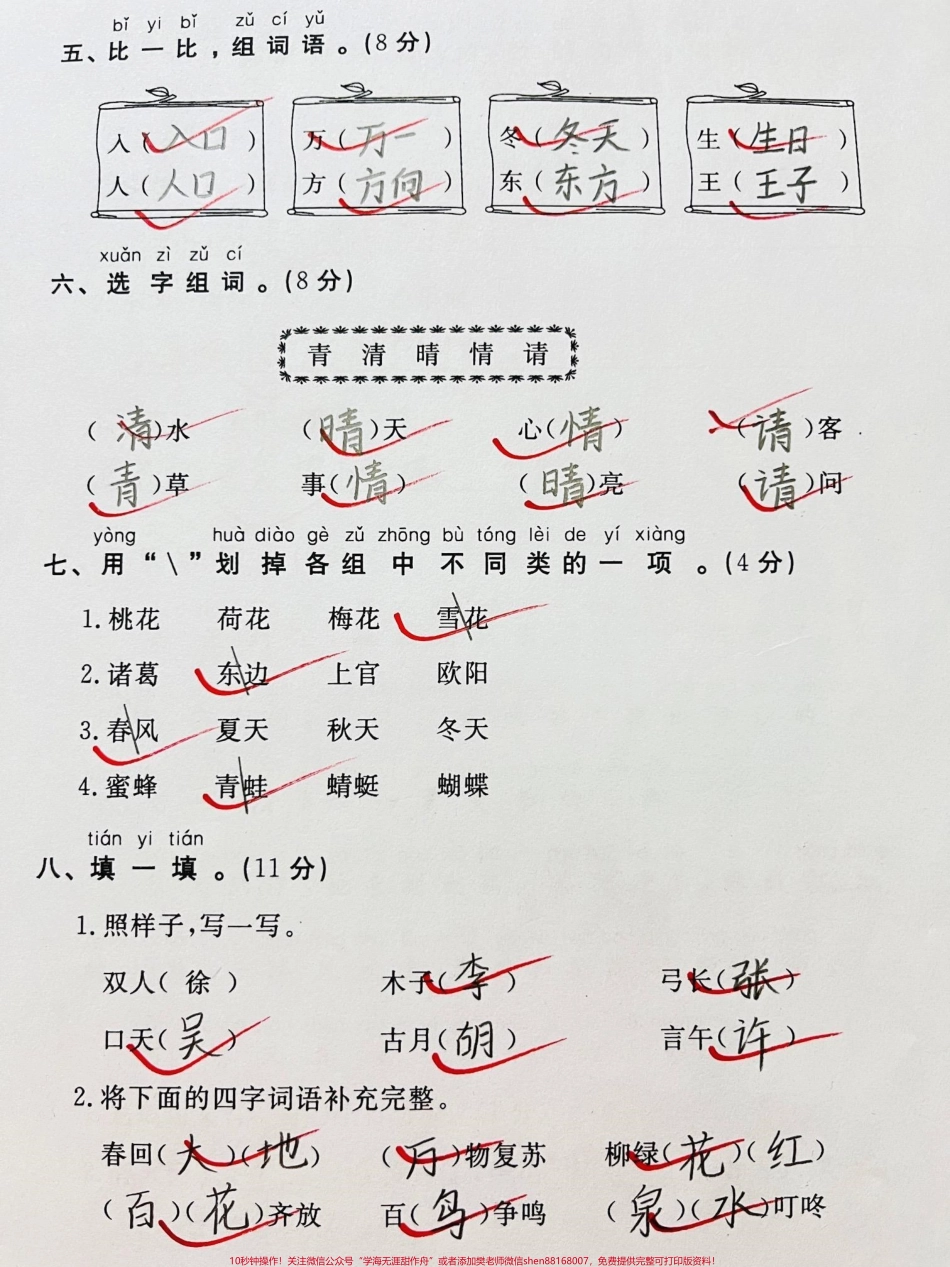 bǐ yi bǐ zǔ cí yǔ
五、比一比，组词语。(8分)
人（入口） 万（万一） 冬（冬天） 生（生日）
人（人口） 方（方向） 东（东方） 王（王子）
xuǎn zì zǔ cí
六、选字组词。(8分)
青 清 晴 情 请
（清）水 （晴）天 心（情） （请）客
（青）草 事（情） （晴）亮 （请）问
yòng huà diào gè zǔ zhōng bù tóng lèi de yí xiàng
七、用“\”划掉各组中不同类的一项。(4分)
1.桃花 荷花 梅花 雪花
2.诸葛 东边 上官 欧阳
3.春风 夏天 秋天 冬天
4.蜜蜂 青蛙 蜻蜓 蝴蝶
tián yi tián
八、填一填。(11分)
1.照样子,写一写。
双人（徐） 木子（李） 弓长（张）
口天（吴） 古月（胡） 言午（许）
2.将下面的四字词语补充完整。
春回（大）（地） （万）物复苏 柳绿（花）（红）
（百）（花）齐放 百（鸟）争鸣 （泉）（水）叮咚
10秒钟操作！关注微信公众号“学海无涯甜作舟”或者添加樊老师微信shen88168007，免费提供完整可打印版资料！